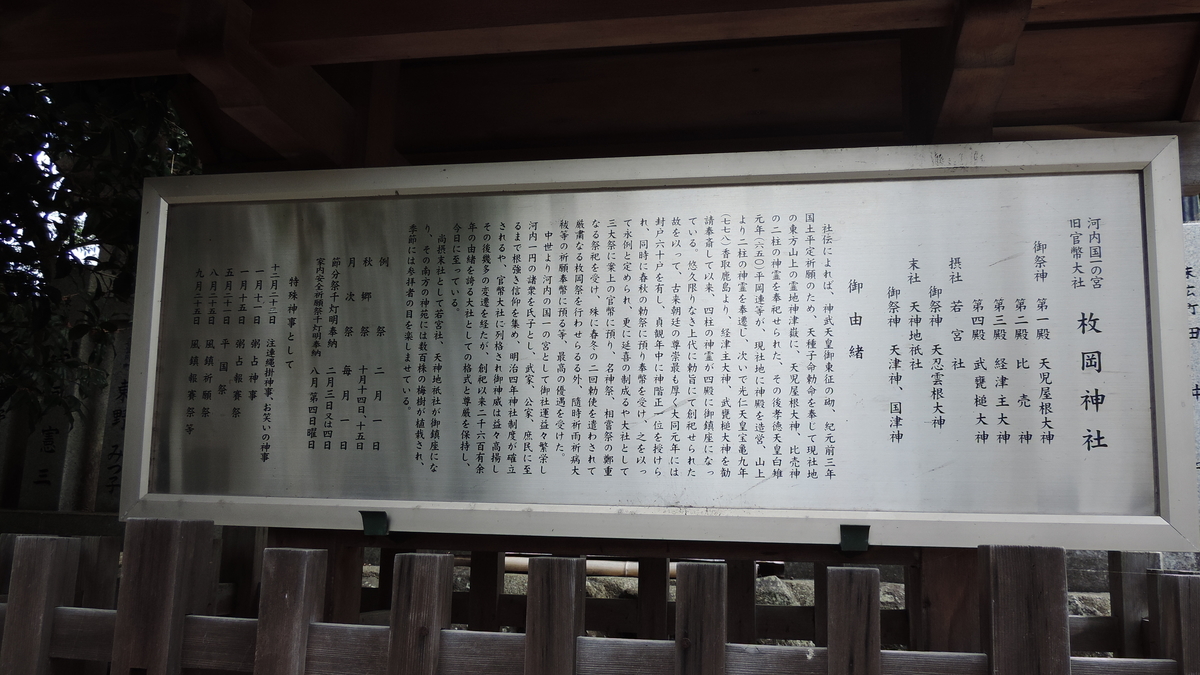 河内国一の宮
旧官幣大社
枚岡神社
御祭神 第一殿 天児屋根大神
第二殿 比売神
第三殿 経津主大神
第四殿 武甕槌大神
摂社 若宮社
御祭神 天忍雲根大神
末社 天神地祇社
御祭神 天津神、国津神
御由緒
社伝によれば、神武天皇御東征の砌、紀元前三年
国土平定祈願のため、天種子命勅命を奉じて現社地
の東方山上の霊地神津嶽に、天児屋根大神、比売神
の二柱の神霊を奉祀せられた、その後孝徳天皇白雉
元年(六五〇)平岡連等が、現社地に神殿を造営、山上
より二柱の神霊を奉遷し、次いで光仁天皇宝亀九年
(七七八)香取鹿島より、経津主大神、武甕槌大神を勧
請奉斎して以来、四柱の神霊が四殿に御鎮座になっ
ている。悠久限りなき上代に勅旨にて創祀せられた
故を以って、古来朝廷の尊崇最も厚く大同元年には
封戸六十戸を有し、貞観年中に神階正一位を授けら
れ、同時に春秋の勅祭に預り奉幣を受け、之を以っ
て永例と定められ、更に延喜の制成るや大社として
三大祭に案上の官幣に預り、名神祭、相嘗祭の鄭重
なる祭祀を受け、殊に春冬の二回勅使を遣わされて
厳粛なる枚岡祭を行わせらるる外、随時祈雨祈病大
祓等の祈願奉幣に預る等、最高の優遇を受けた。
中世より河内の国一の宮として御社運益々繁栄し
河内一円の諸衆を氏子とし、武家、公家、庶民に至
るまで根強き信仰を集め、明治四年神社制度が確立
されるや、官幣大社に列格され御神威は益々高揚し
その後幾多の変遷を経たが、創祀以来二千六百有余
年の由緒を誇る大社としての格式と尊厳を保持し、
今日に至っている。
尚摂末社として若宮社、天神地祇社が御鎮座にな
り、その南方の神苑には数百株の梅樹が植栽され、
季節には参拝者の目を楽しませている。
例祭 二月一日
秋郷祭 十月十四日、十五日
月次祭 毎月一日
節分祭千灯明奉納 二月三日又は四日
家内安全祈願祭千灯明奉納 八月第四日曜日
特殊神事として
十二月二十三日 注連縄掛神事、お笑いの神事
一月十一日 粥占神事
一月十五日 粥占報賽祭
五月二十一日 平国祭
八月二十五日 風鎮祈願祭
九月二十五日 風鎮報賽祭等